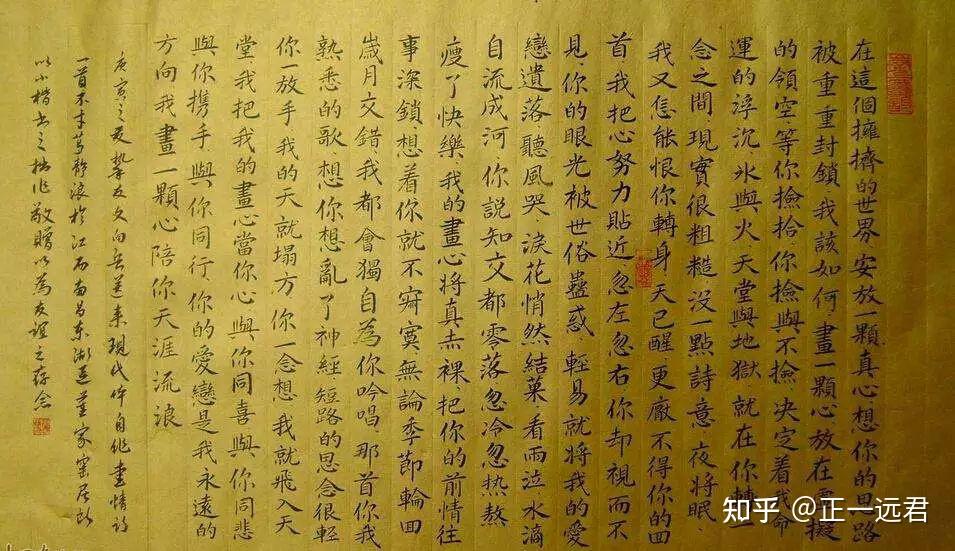 在這個擁擠的世界、安放一顆真心想你的思路
被重重封鎖、我該如何畫一顆心、放在虛擬
的領空、等你撿拾、你撿與不撿、決定着我命
運的浮沉、氷與火、天堂與地獄、就在你轉
念之間、現實很粗糙、沒一點詩意、夜將眠
我又怎能恨你轉身、天已醒、更厭不得你的回
首、我把心努力貼近、忽左忽右、你却視而不
見、你的眼光被世俗蠱惑、輕易就將我的愛
戀遺落、聽風哭、淚花悄然結菓、看雨泣、水滴
自流成河、你説知交都零落、忽冷忽熱、熬
瘦了快樂、我的畫心將真赤裸、把你的前情往
事深鎖、想着你就不寂寞、無論季節輪回
歲月交錯、我都會獨自為你吟唱、那首你我
熟悉的歌、想你想亂了神經、短路的思念很輕
你一放手、我的天就塌方、你一念想、我就飛入天
堂、我把我的畫心當你心、與你同喜、與你同悲
與你携手、與你同行、你的愛戀是我永遠的
方向、我畫一顆心、陪你天涯流浪
庚寅之夏摯友文向
現代体自作畫情詩
一首於江西南昌東湖區
以小楷書之拙作敬贈以為友誼之存念
知乎 @正一远君